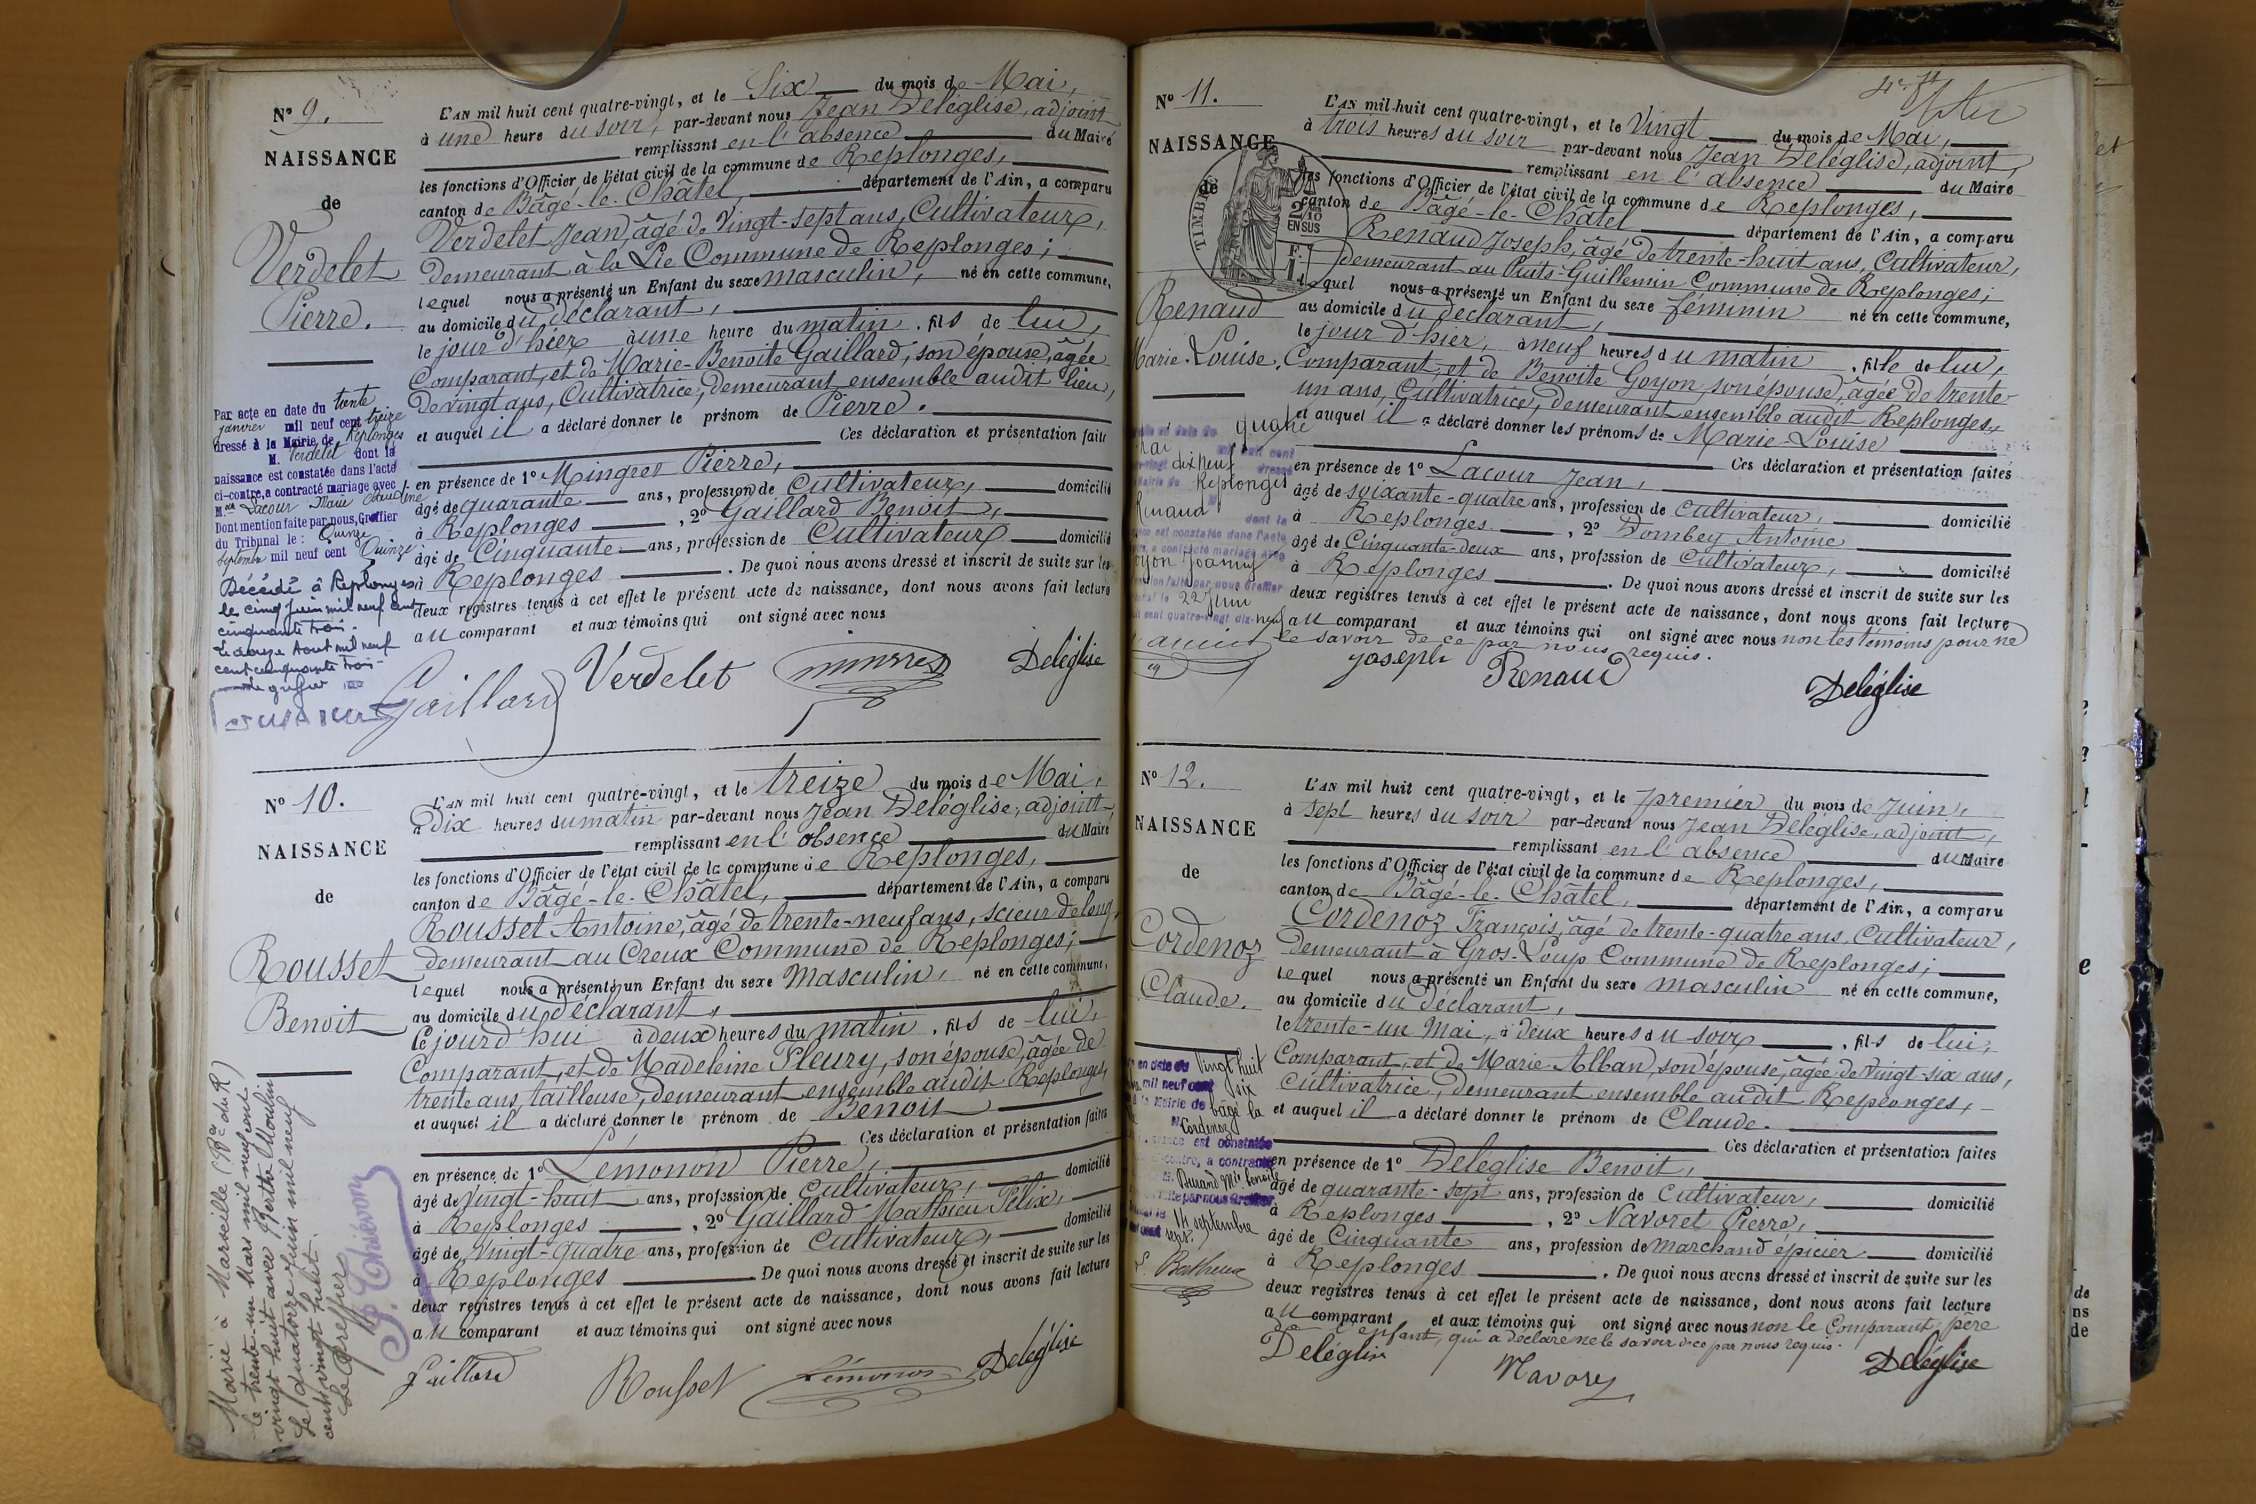 N° 9.
NAISSANCE
de
Verdelet
Pierre.
L'AN mil huit cent quatre-vingt, et le Six du mois de Mai,
à une heure du soir, par-devant nous Jean Deléglise, adjoint
remplissant en l'absence du Maire
les fonctions d'Officier de l'état civil de la commune de Replonges,
canton de Bâgé-le-Châtel, département de l'Ain, a comparu
Verdelet Jean, âgé de vingt-sept ans, Cultivateur,
demeurant à la Lie Commune de Replonges;
lequel nous a présenté un Enfant du sexe masculin, né en cette commune,
au domicile du déclarant,
le jour d'hier à une heure du matin, fils de lui,
Comparant, et de Marie-Benoite Gaillard, son épouse, âgée
de vingt ans, Cultivatrice, demeurant ensemble audit lieu,
et auquel il a déclaré donner le prénom de Pierre.
Ces déclaration et présentation faites
en présence de 1° Mingret Pierre,
âgé de quarante ans, profession de Cultivateur, domicilié
à Replonges, 2° Gaillard Benoit,
âgé de Cinquante ans, profession de Cultivateur domicilié
à Replonges. De quoi nous avons dressé et inscrit de suite sur les
deux registres tenus à cet effet le présent acte de naissance, dont nous avons fait lecture
au comparant et aux témoins qui ont signé avec nous
Gaillard Verdelet Deléglise
Par acte en date du trente
janvier mil neuf cent treize
dressé à la Mairie de Replonges
M. Verdelet dont la
naissance est constatée dans l'acte
ci-contre, a contracté mariage avec
Lacour Marie Claudine
Dont mention faite par nous, Greffier
du Tribunal le : Quinze
Septembre mil neuf cent Quinze
Décédé à Replonges
le cinq Juin mil neuf cent
cinquante trois.
Le douze Aout mil neuf
cent cinquante trois-
le greffier
N° 10.
NAISSANCE
de
Rousset
Benoit
L'AN mil huit cent quatre-vingt, et le treize du mois de Mai,
à Dix heures du matin par-devant nous Jean Deléglise, adjoint
remplissant en l'absence du Maire
les fonctions d'Officier de l'état civil de la commune de Replonges,
canton de Bâgé-le-Châtel, département de l'Ain, a comparu
Rousset Antoine, âgé de trente-neuf ans, scieur de long,
demeurant au Creux Commune de Replonges;
lequel nous a présenté un Enfant du sexe Masculin, né en cette commune,
au domicile du déclarant,
le jourd'hui à deux heures du matin, fils de lui,
Comparant, et de Madeleine Fleury, son épouse, âgée de
trente ans, tailleuse, demeurant ensemble audit Replonges,
et auquel il a déclaré donner le prénom de Benoit
Ces déclaration et présentation faites
en présence de 1° Lémonon Pierre,
âgé de vingt-huit ans, profession de Cultivateur, domicilié
à Replonges, 2° Gaillard Mathieu Félix,
âgé de vingt-quatre ans, profession de Cultivateur, domicilié
à Replonges De quoi nous avons dressé et inscrit de suite sur les
deux registres tenus à cet effet le présent acte de naissance, dont nous avons fait lecture
au comparant et aux témoins qui ont signé avec nous
Gaillard Rousset Lémonon Deléglise
Marié à Marseille
le trente-un Mars mil neuf cent
vingt huit avec Berthe Moulin
Le quatorze Juin mil neuf
cent vingt huit.
Le Greffier
N° 11.
NAISSANCE
de
Renaud
Marie-Louise.
TIMBRE
2/10
EN SUS
L'AN mil huit cent quatre-vingt, et le Vingt du mois de Mai,
à trois heures du soir par-devant nous Jean Deléglise, adjoint,
remplissant en l'absence du Maire
les fonctions d'Officier de l'état civil de la commune de Replonges,
canton de Bâgé-le-Châtel département de l'Ain, a comparu
Renaud Joseph, âgé de trente-huit ans, Cultivateur,
demeurant au Puits-Guillemin Commune de Replonges;
lequel nous a présenté un Enfant du sexe féminin né en cette commune,
au domicile du déclarant,
le jour d'hier, à neuf heures du matin, fille de lui,
Comparant, et de Benoite Goyon, son épouse, âgée de trente-
un ans, Cultivatrice, demeurant ensemble audit Replonges,
et auquel il a déclaré donner les prénoms de Marie-Louise
Ces déclaration et présentation faites
en présence de 1° Lacour Jean,
âgé de soixante-quatre ans, profession de Cultivateur, domicilié
à Replonges, 2° Dombey Antoine
âgé de Cinquante-deux ans, profession de Cultivateur, domicilié
à Replonges. De quoi nous avons dressé et inscrit de suite sur les
deux registres tenus à cet effet le présent acte de naissance, dont nous avons fait lecture
au comparant et aux témoins qui ont signé avec nous non les témoins pour ne
le savoir de ce par nous requis.
joseph Renaud Deléglise
quatre
mai mil huit cent
dix neuf dressé
Replonges
Renaud
dont la
est constatée dans l'acte
a contracté mariage avec
Goyon Joanny
faite par nous Greffier
le 22 Juin
cent quatre-vingt dix-neuf
N° 12.
NAISSANCE
de
Cordenoz
Claude.
L'AN mil huit cent quatre-vingt, et le premier du mois de Juin,
à sept heures du soir par-devant nous Jean Deléglise, adjoint,
remplissant en l'absence du Maire
les fonctions d'Officier de l'état civil de la commune de Replonges,
canton de Bâgé-le-Châtel, département de l'Ain, a comparu
Cordenoz François, âgé de trente-quatre ans, Cultivateur,
demeurant à Gros-Loup Commune de Replonges;
lequel nous a présenté un Enfant du sexe masculin né en cette commune,
au domicile du déclarant,
le trente-un Mai, à deux heures du soir, fils de lui,
Comparant, et de Marie Alban, son épouse, âgée de vingt-six ans,
cultivatrice, demeurant ensemble audit Replonges,
et auquel il a déclaré donner le prénom de Claude.
Ces déclaration et présentation faites
en présence de 1° Deléglise Benoit,
âgé de quarante-sept ans, profession de Cultivateur, domicilié
à Replonges, 2° Navoret Pierre,
âgé de Cinquante ans, profession de Marchand épicier domicilié
à Replonges. De quoi nous avons dressé et inscrit de suite sur les
deux registres tenus à cet effet le présent acte de naissance, dont nous avons fait lecture
au comparant et aux témoins qui ont signé avec nous non le Comparant, père
de l'enfant, qui a déclaré ne le savoir de ce par nous requis.
Deléglise Navoret Deléglise
en date du Vingt huit
mil neuf cent six
Mairie de bâgé la
Cordenoz
est constatée
a contracté
Durand
par nous Greffier
14 septembre
sept.